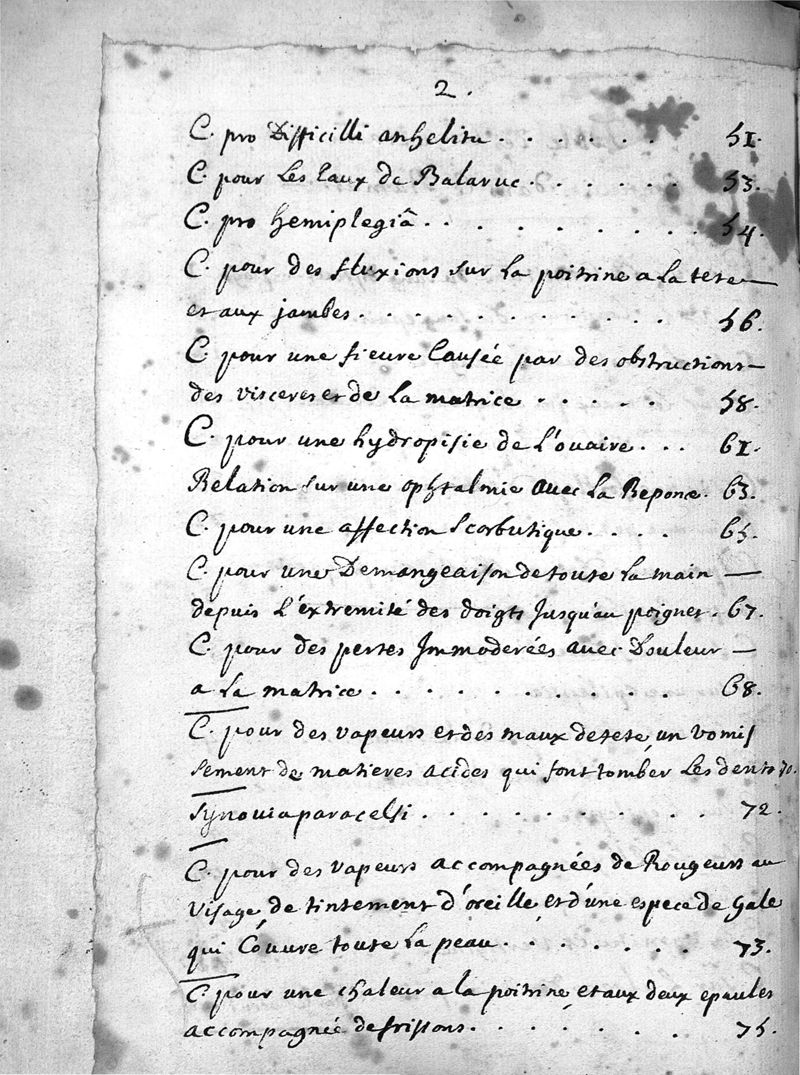 2.
C. pro Difficilli anhelitu . . . . . . 51.
C. pour Les Eaux de Balaruc . . . . . . 53.
C. pro hemiplegiâ . . . . . . . . . 54.
C. pour des fluxions sur La poitrine a La tete
et aux jambes . . . . . . . . . . 56.
C. pour une fieure Causée par des obstructions
des visceres et de La matrice . . . . . 58.
C. pour une hydropisie de L'ouaire . . . 61.
Relation sur une ophtalmie avec La Reponce . 63.
C. pour une affection Scorbutique . . . . 65.
C. pour une Demangeaison de toute La main —
depuis L'extremité des doigts Jusqu'au poignet . 67.
C. pour des pertes Immoderées avec Douleur —
a La matrice . . . . . . . . . 68.
C. pour des vapeurs et des maux de tete, un vomis
sement de matieres acides qui font tomber Les dents 70.
Synovia paracelsi . . . . . . . . 72.
C. pour des vapeurs accompagnées de Rougeurs au
visage, de tintement d'oreille et d'une espece de Gale
qui Couure toute La peau . . . . . . . 73.
C. pour une chaleur a la poitrine et aux deux epaules
accompagnée de frissons . . . . . . 75.